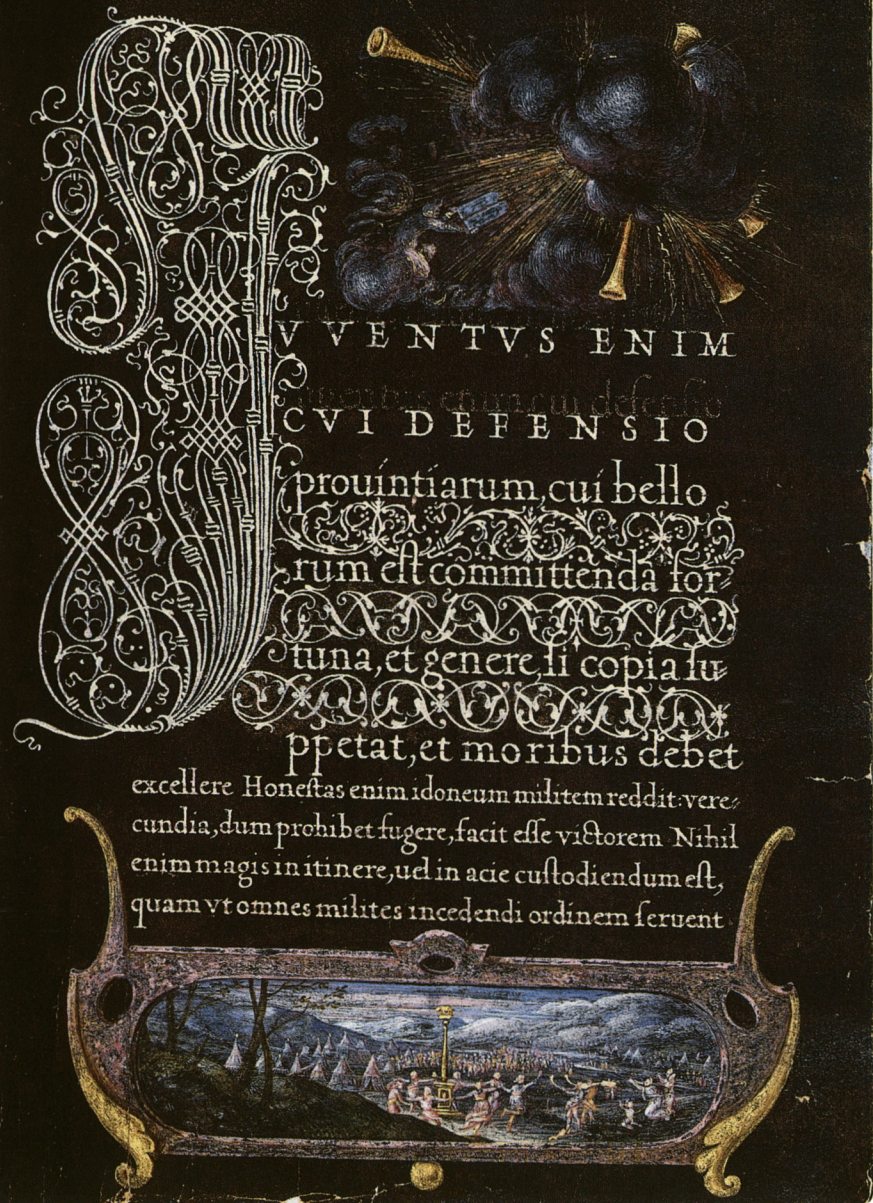 JVVENTVS ENIM
iuventus enim cui defensio
CVI DEFENSIO
prouintiarum, cui bello
rum eſt committenda for⸗
tuna, et genere, ſi copia ſu⸗
ppetat, et moribus debet
excellere Honeſtas enim idoneum militem reddit: vere⸗
cundia, dum prohibet fugere, facit eſſe victorem Nihil
enim magis in itinere, uel in acie cuſtodiendum eſt,
quam vt omnes milites incedendi ordinem ſeruent